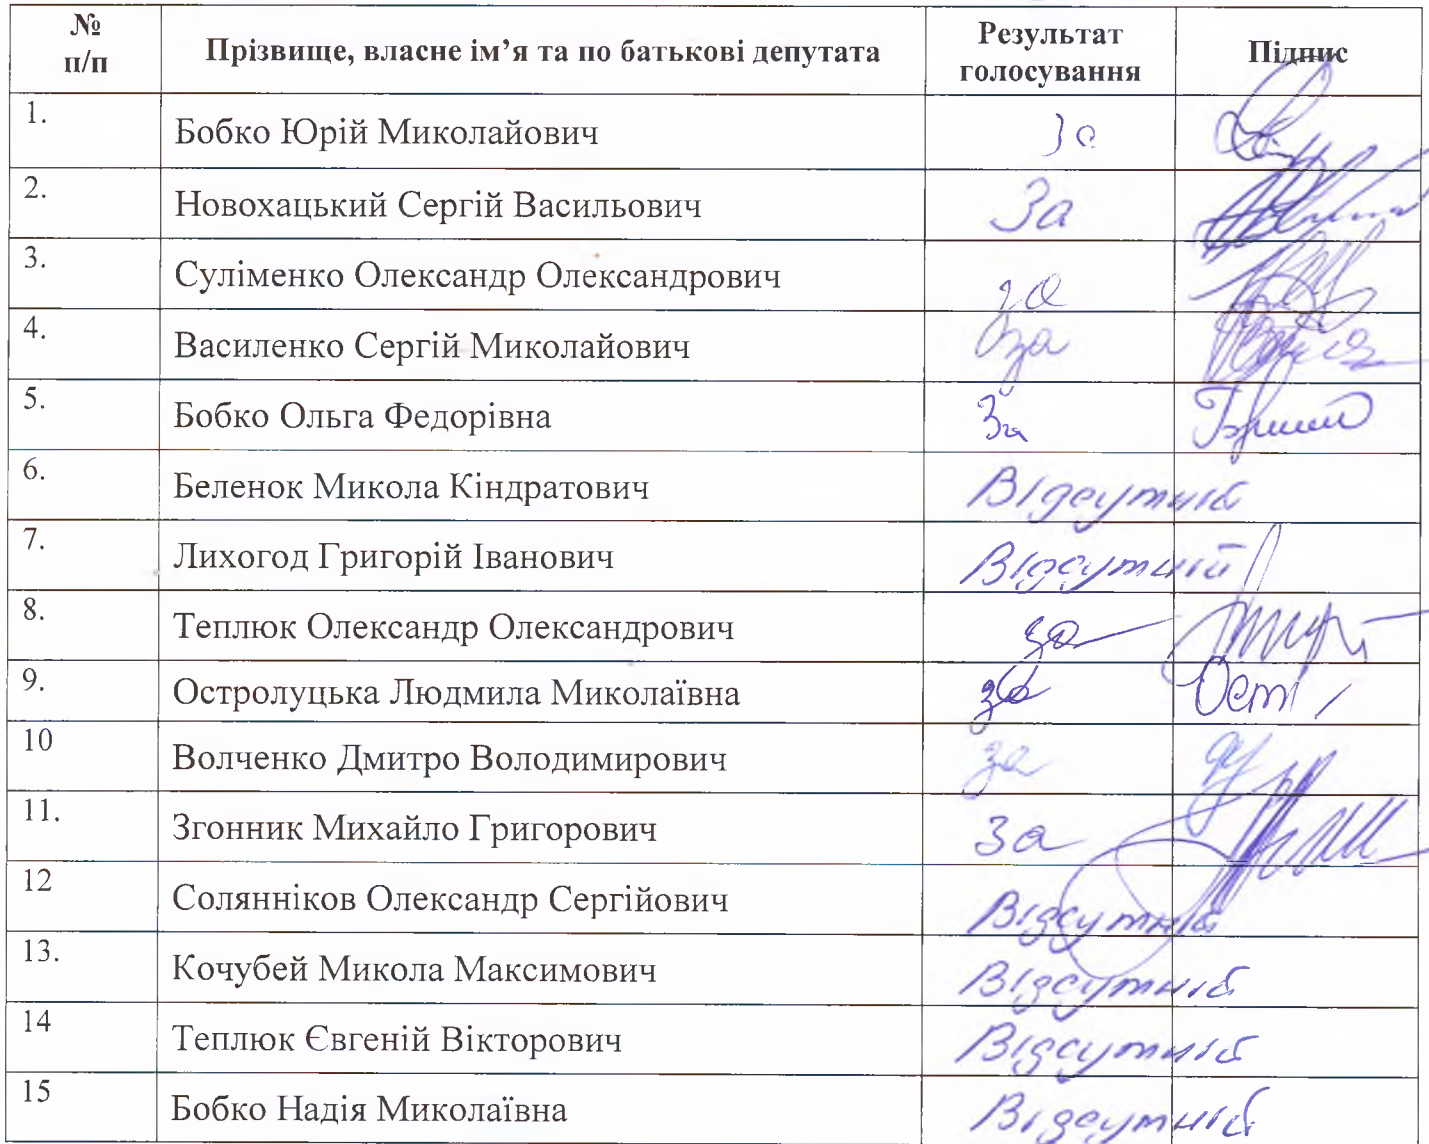 № п/п Прізвище, власне ім’я та по батькові депутата Результат голосування Підпис
1. Бобко Юрій Миколайович За
2. Новохацький Сергій Васильович За
3. Суліменко Олександр Олександрович за
4. Василенко Сергій Миколайович за
5. Бобко Ольга Федорівна За
6. Беленок Микола Кіндратович Відсутній
7. Лихогод Григорій Іванович Відсутній
8. Теплюк Олександр Олександрович за
9. Остролуцька Людмила Миколаївна за
10 Волченко Дмитро Володимирович за
11. Згонник Михайло Григорович За
12 Солянніков Олександр Сергійович Відсутній
13. Кочубей Микола Максимович Відсутній
14 Теплюк Євгеній Вікторович Відсутній
15 Бобко Надія Миколаївна Відсутній